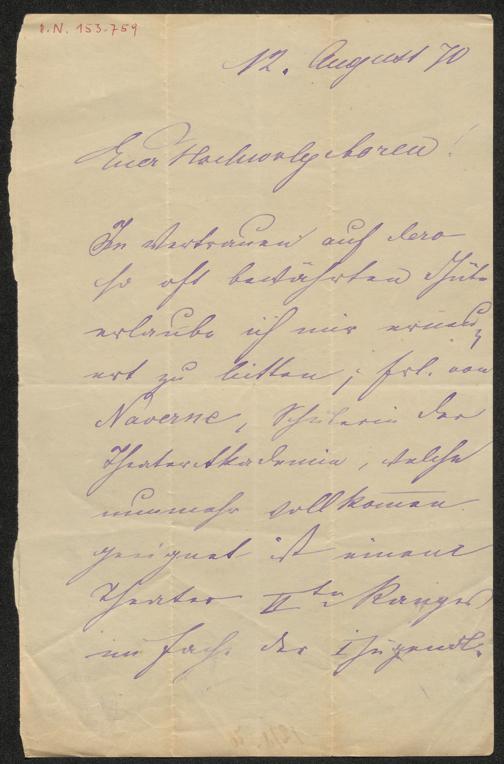 I.N. 153.759
12. August 70
Euer Hochwolgeboren!
Im Vertrauen auf dero
so oft bewährten Güte
erlaube ich mir erneu-
ert zu bitten, Frl. von
Naverne, Schülerin der
Theater Akademie, welche
nunmehr vollkom̅en
geeignet ist einem
Theater II ten Ranges
im Fache der I Jugendl.